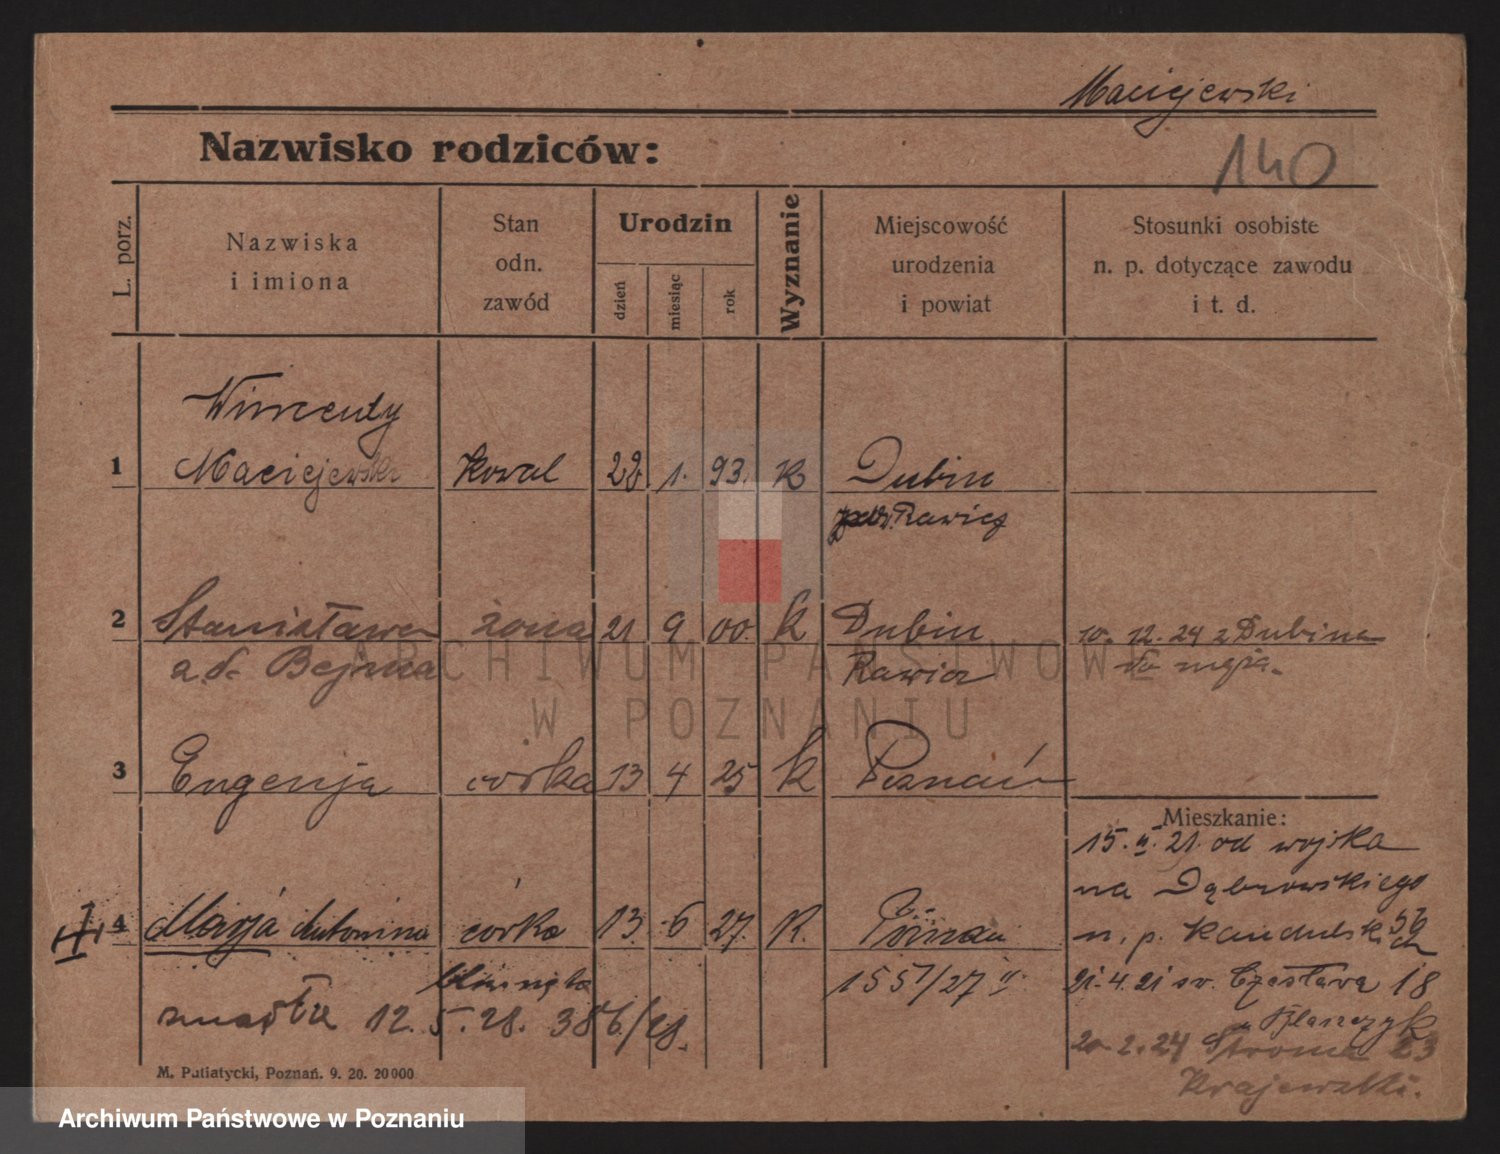 Maciejewski
Nazwisko rodziców:
140
L. porz.
Nazwiska
i imiona
Stan
odn.
zawód
Urodzin
dzień
miesiąc
rok
Wyznanie
Miejscowość
urodzenia
i powiat
Stosunki osobiste
n. p. dotyczące zawodu
i t. d.
Wincenty
1 Maciejewski Kowal 22 1. 93. K Dubin
pow. Rawicz
2 Stanisława żona 21 9 00. K Dubin 10. 12. 24 z Dubina
z d. Bejma Rawicz do męża.
3 Eugenja córka 13 4 25 K Poznań
Mieszkanie:
15. II. 21. od wojska
na Dąbrowskiego
4 Marja Antonina córka 13. 6 27. K. Poznań n. p. Kandulski 56
1551/27 II 21. 4. 21 św. Czesława 18
zmarła 12. 5. 28. 386/28. u Pflanczyk
20. 2. 24 Stroma 23
Krajewski.
M. Putiatycki, Poznań. 9. 20. 20000
ARCHIWUM PAŃSTWOWE
W POZNANIU
Archiwum Państwowe w Poznaniu